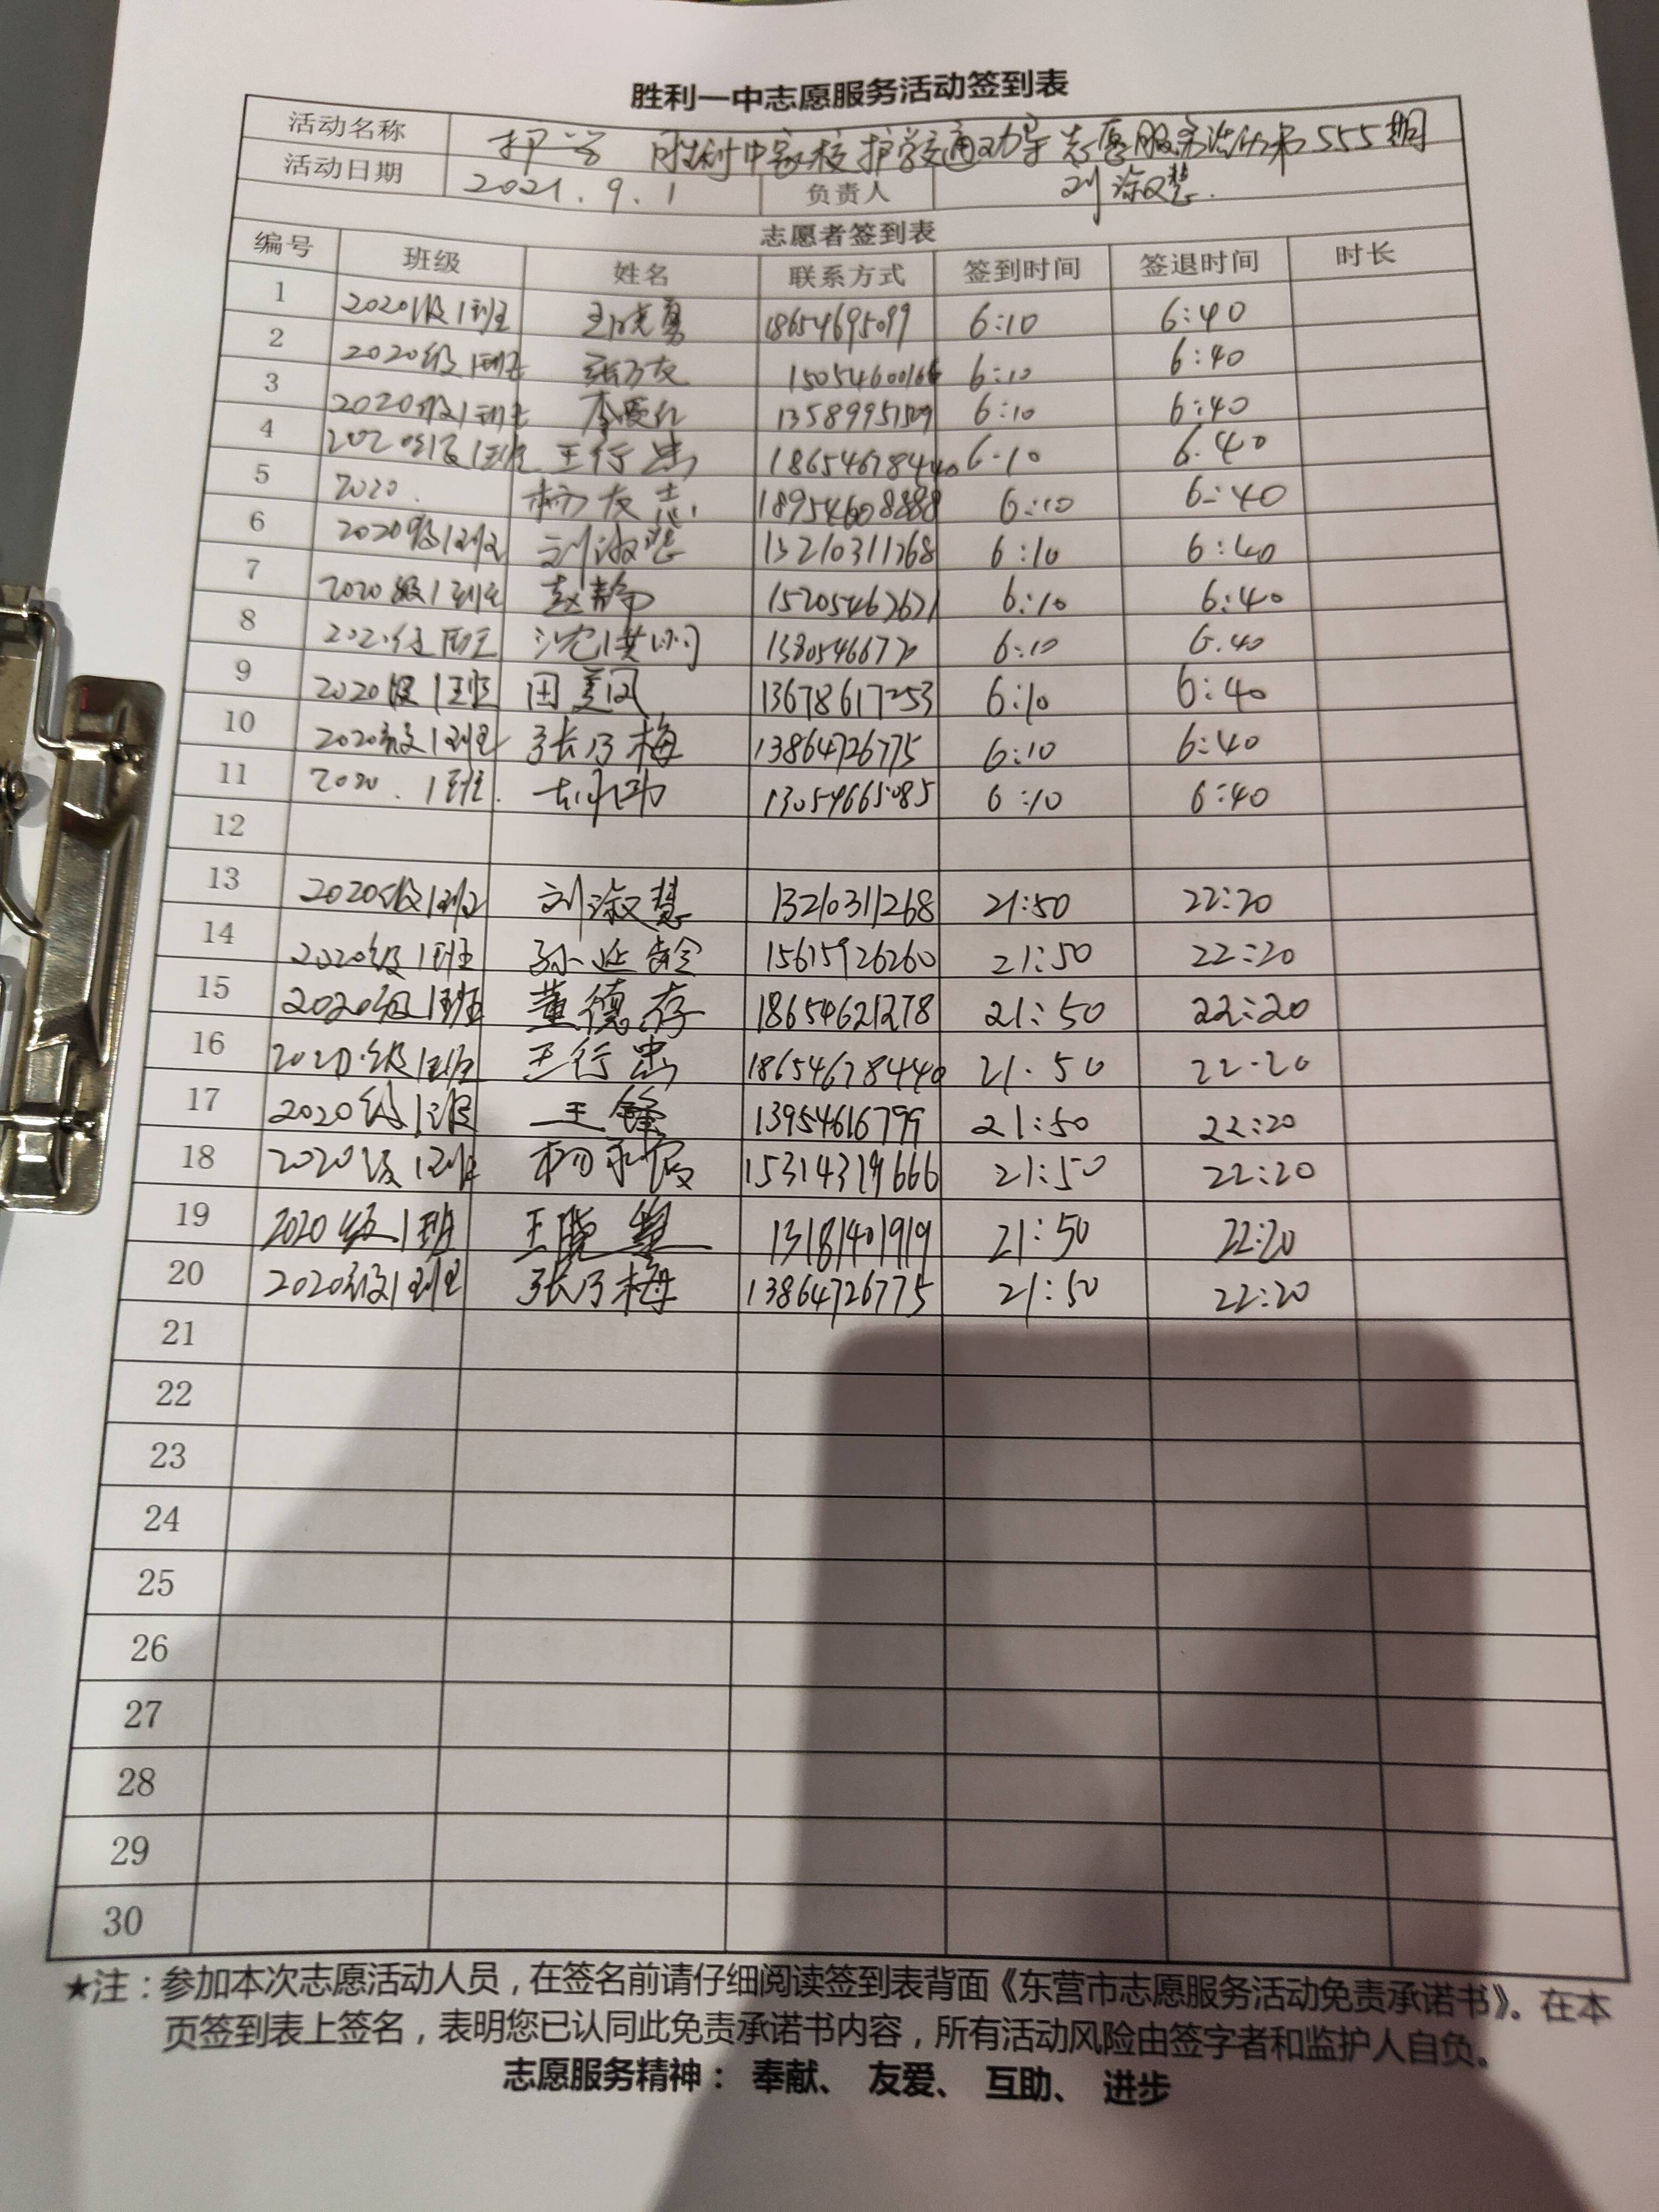 胜利一中志愿服务活动签到表
活动名称 护学 胜利一中家校护学交通劝导志愿服务活动第555期
活动日期 2021.9.1 负责人 刘淑慧
志愿者签到表
编号 班级 姓名 联系方式 签到时间 签退时间 时长
1 2020级1班 王晓勇 18654695099 6:10 6:40
2 2020级1班 张乃友 15054600166 6:10 6:40
3 2020级1班 李爱红 6:10 6:40
4 2020级1班 王行忠 18654678440 6:10 6:40
5 2020. 杨友志 18954608888 6:10 6:40
6 2020级1班 刘淑慧 13210311268 6:10 6:40
7 2020级1班 赵静 15205467671 6:10 6:40
8 6:10 6:40
9 2020级1班 田美凤 13678617253 6:10 6:40
10 2020级1班 张乃梅 13864726775 6:10 6:40
11 2020.1班. 13054665085 6:10 6:40
12
13 2020级1班 刘淑慧 13210311268 21:50 22:20
14 2020级1班 孙延龄 15615926260 21:50 22:20
15 2020级1班 董德存 18654621278 21:50 22:20
16 2020级1班 王行忠 18654678440 21:50 22:20
17 2020级1班 王锋 13954616799 21:50 22:20
18 2020级1班 15314319666 21:50 22:20
19 2020级1班 王晓 13181401919 21:50 22:20
20 2020级1班 张乃梅 13864726775 21:50 22:20
21
22
23
24
25
26
27
28
29
30
★注：参加本次志愿活动人员，在签名前请仔细阅读签到表背面《东营市志愿服务活动免责承诺书》。在本
页签到表上签名，表明您已认同此免责承诺书内容，所有活动风险由签字者和监护人自负。
志愿服务精神： 奉献、 友爱、 互助、 进步